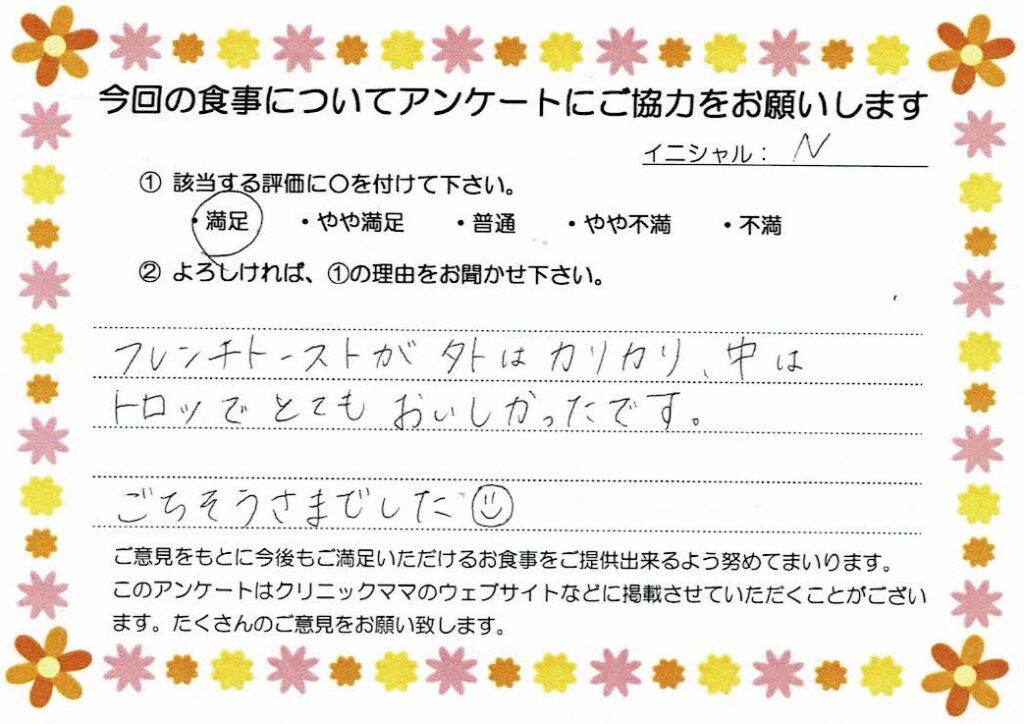 今回の食事についてアンケートにご協力をお願いします
イニシャル： N
① 該当する評価に〇を付けて下さい。
・満足 ・やや満足 ・普通 ・やや不満 ・不満
② よろしければ、①の理由をお聞かせ下さい。
フレンチトーストが 外は カリカリ、中は
トロッで とても おいしかったです。
ごちそうさまでした
ご意見をもとに今後もご満足いただけるお食事をご提供出来るよう努めてまいります。
このアンケートはクリニックママのウェブサイトなどに掲載させていただくことがござい
ます。たくさんのご意見をお願い致します。